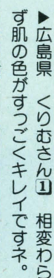 ▶広島県　くりむさん1　相変わら
ず肌の色がすっごくキレイですネ。